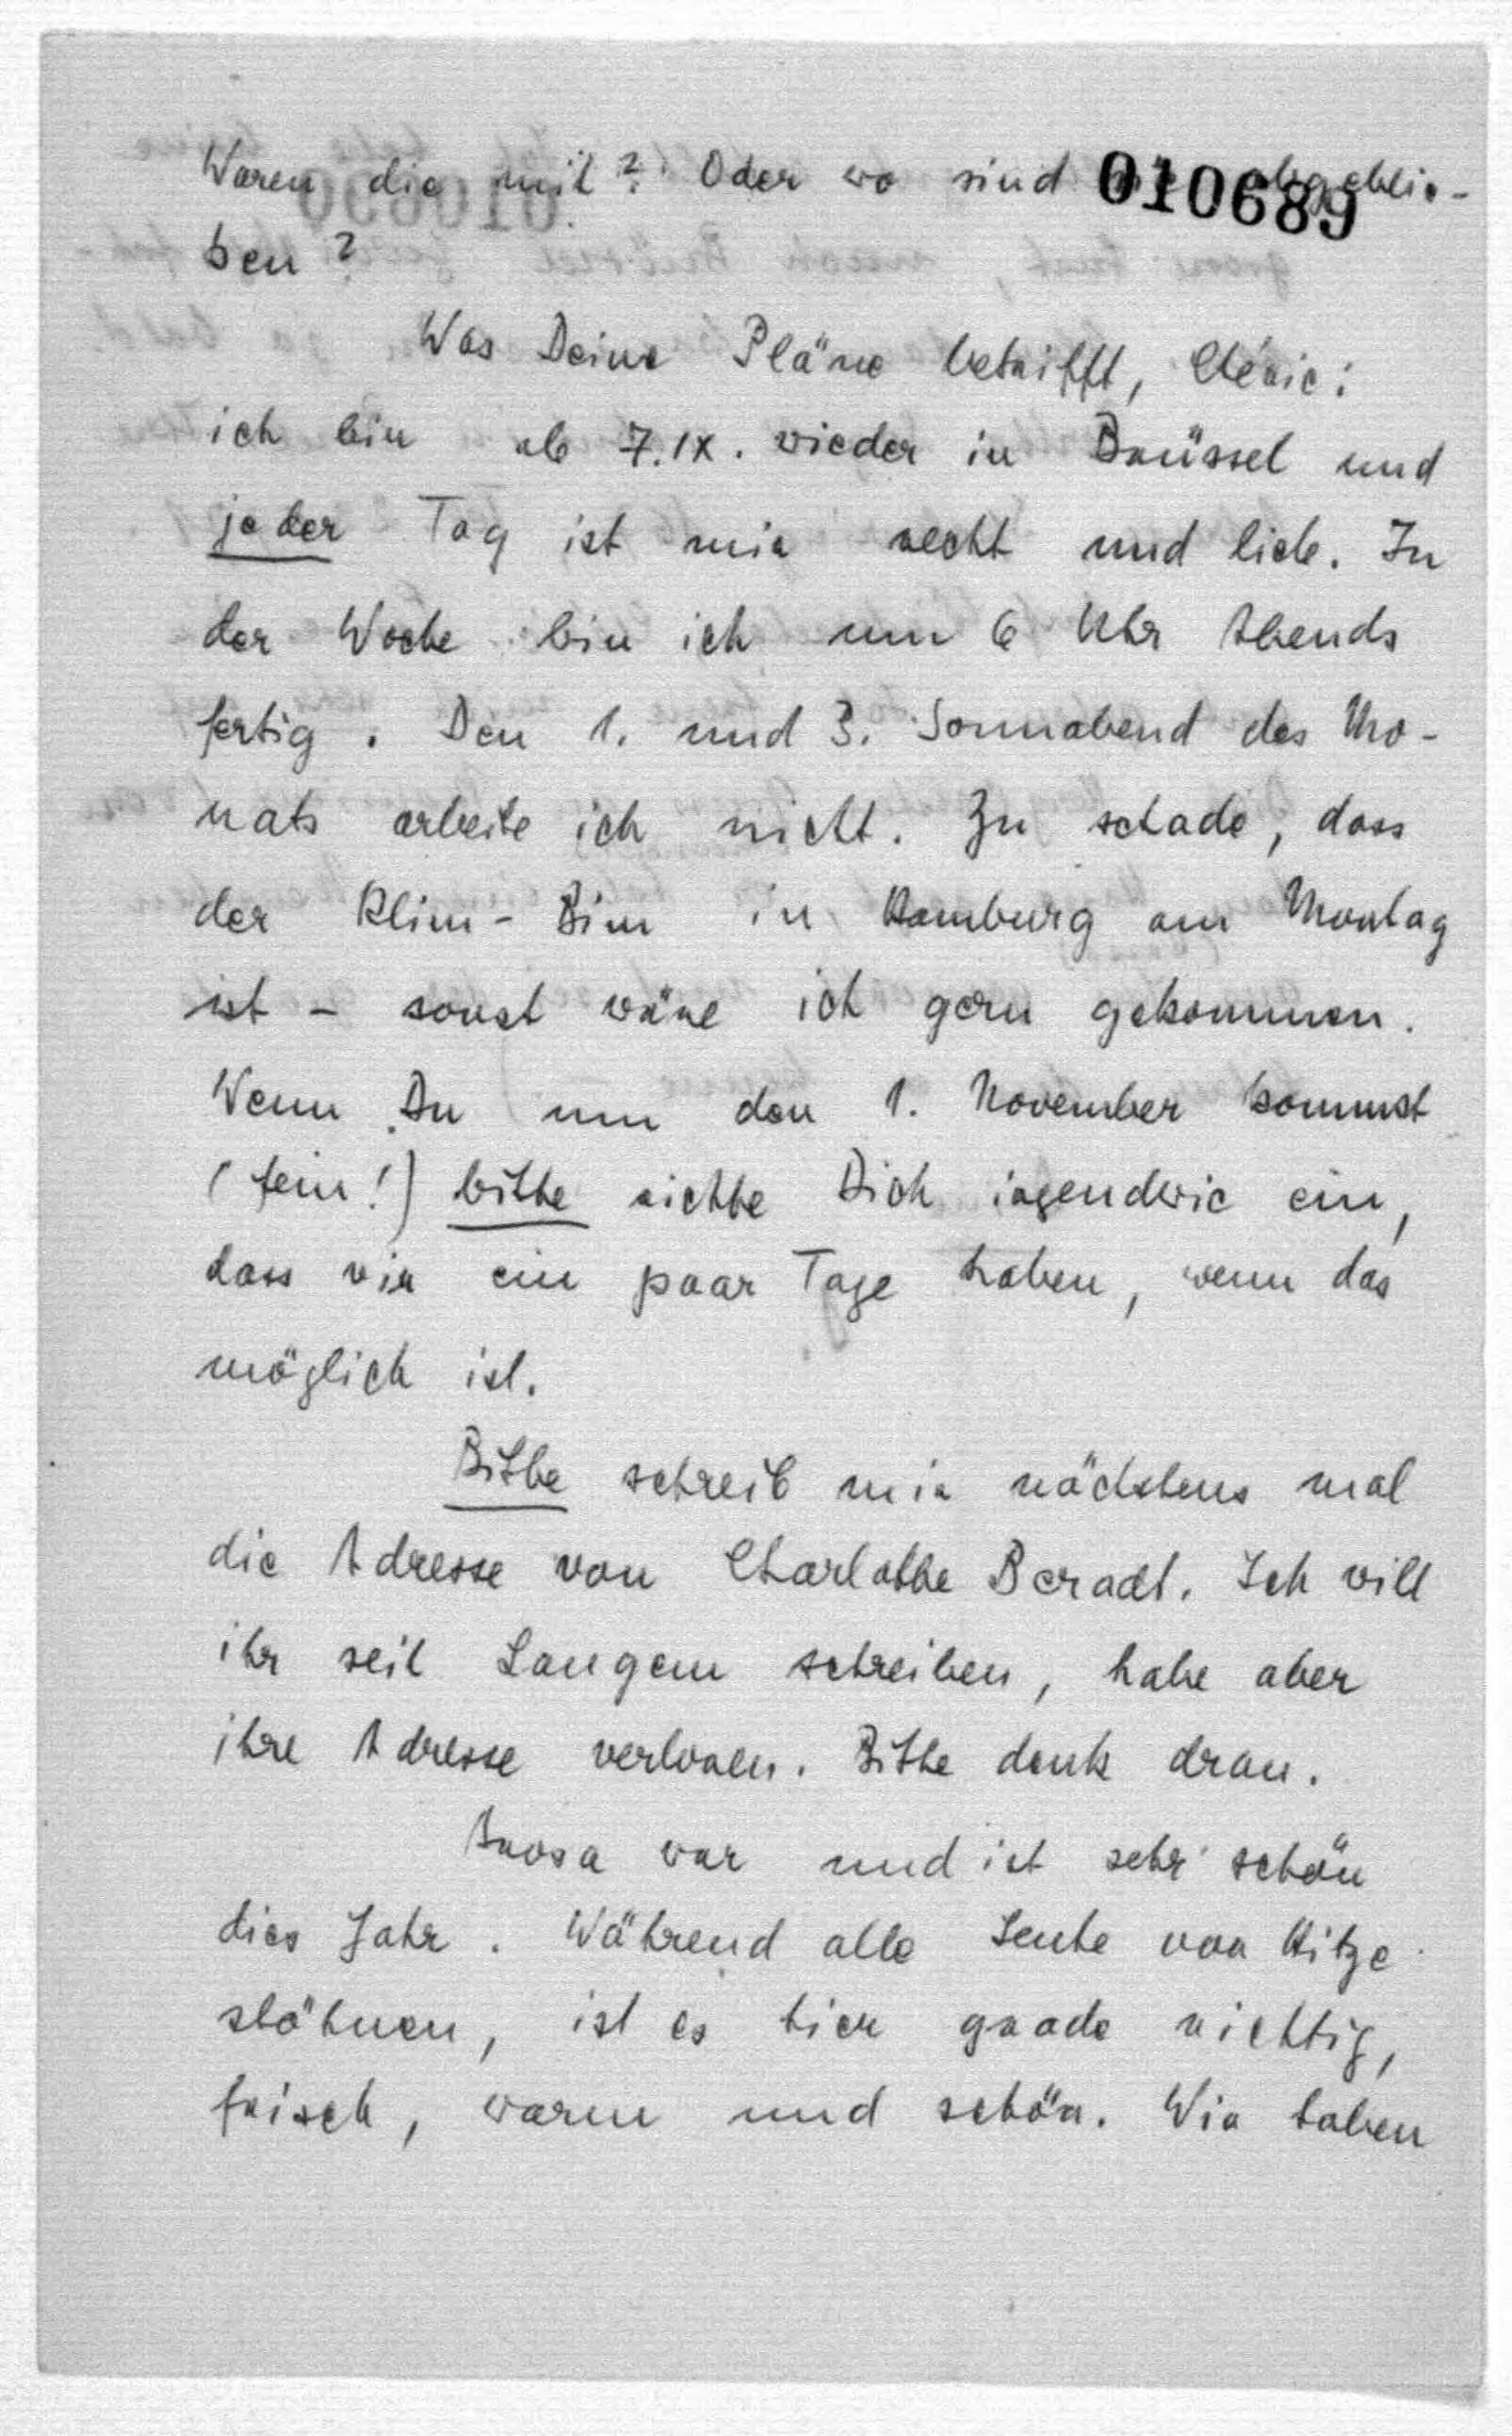 010689
Waren die mit? Oder wo sind sie abgeblie-
ben?
Was Deine Pläne betrifft, Chérie:
ich bin ab 7.IX. wieder in Brüssel und
jeder Tag ist mir recht und lieb. In
der Woche bin ich um 6 Uhr Abends
fertig. Den 1. und 3. Sonnabend des Mo-
nats arbeite ich nicht. Zu schade, dass
der Klim-Bim in Hamburg am Montag
ist – sonst wäre ich gern gekommen.
Wenn Du um den 1. November kommst
(fein!) bitte richte Dich irgendwie ein,
dass wir ein paar Tage haben, wenn das
möglich ist.
Bitte schreib mir nächstens mal
die Adresse von Charlotte Beradt. Ich will
ihr seit Langem schreiben, habe aber
ihre Adresse verloren. Bitte denk dran.
Arosa war und ist sehr schön
dies Jahr. Während alle Leute vor Hitze
stöhnen, ist es hier grade richtig,
frisch, warm und schön. Wir haben